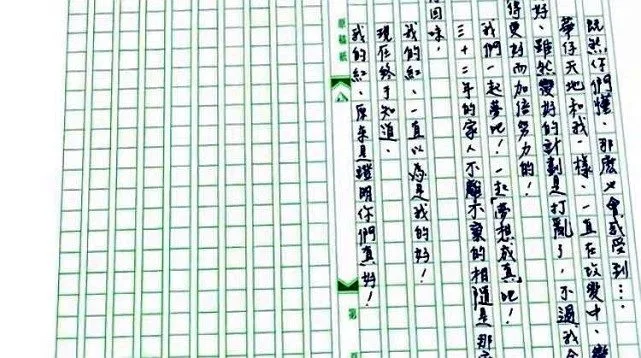 既然你們懂、那麼也會感受到…
華仔天地和我一樣、一直在改變中、變
好、雖然變好的計劃是打亂了，不過我
得更好而加倍努力的！
我們一起夢吧！一起「夢想成真」吧！
三十二年的家人不離不棄的相隨是那
回味，
我的紅、一直以為是我的好！
現在終于知道、
我的紅、原來是證明你們真好！
原稿紙
第